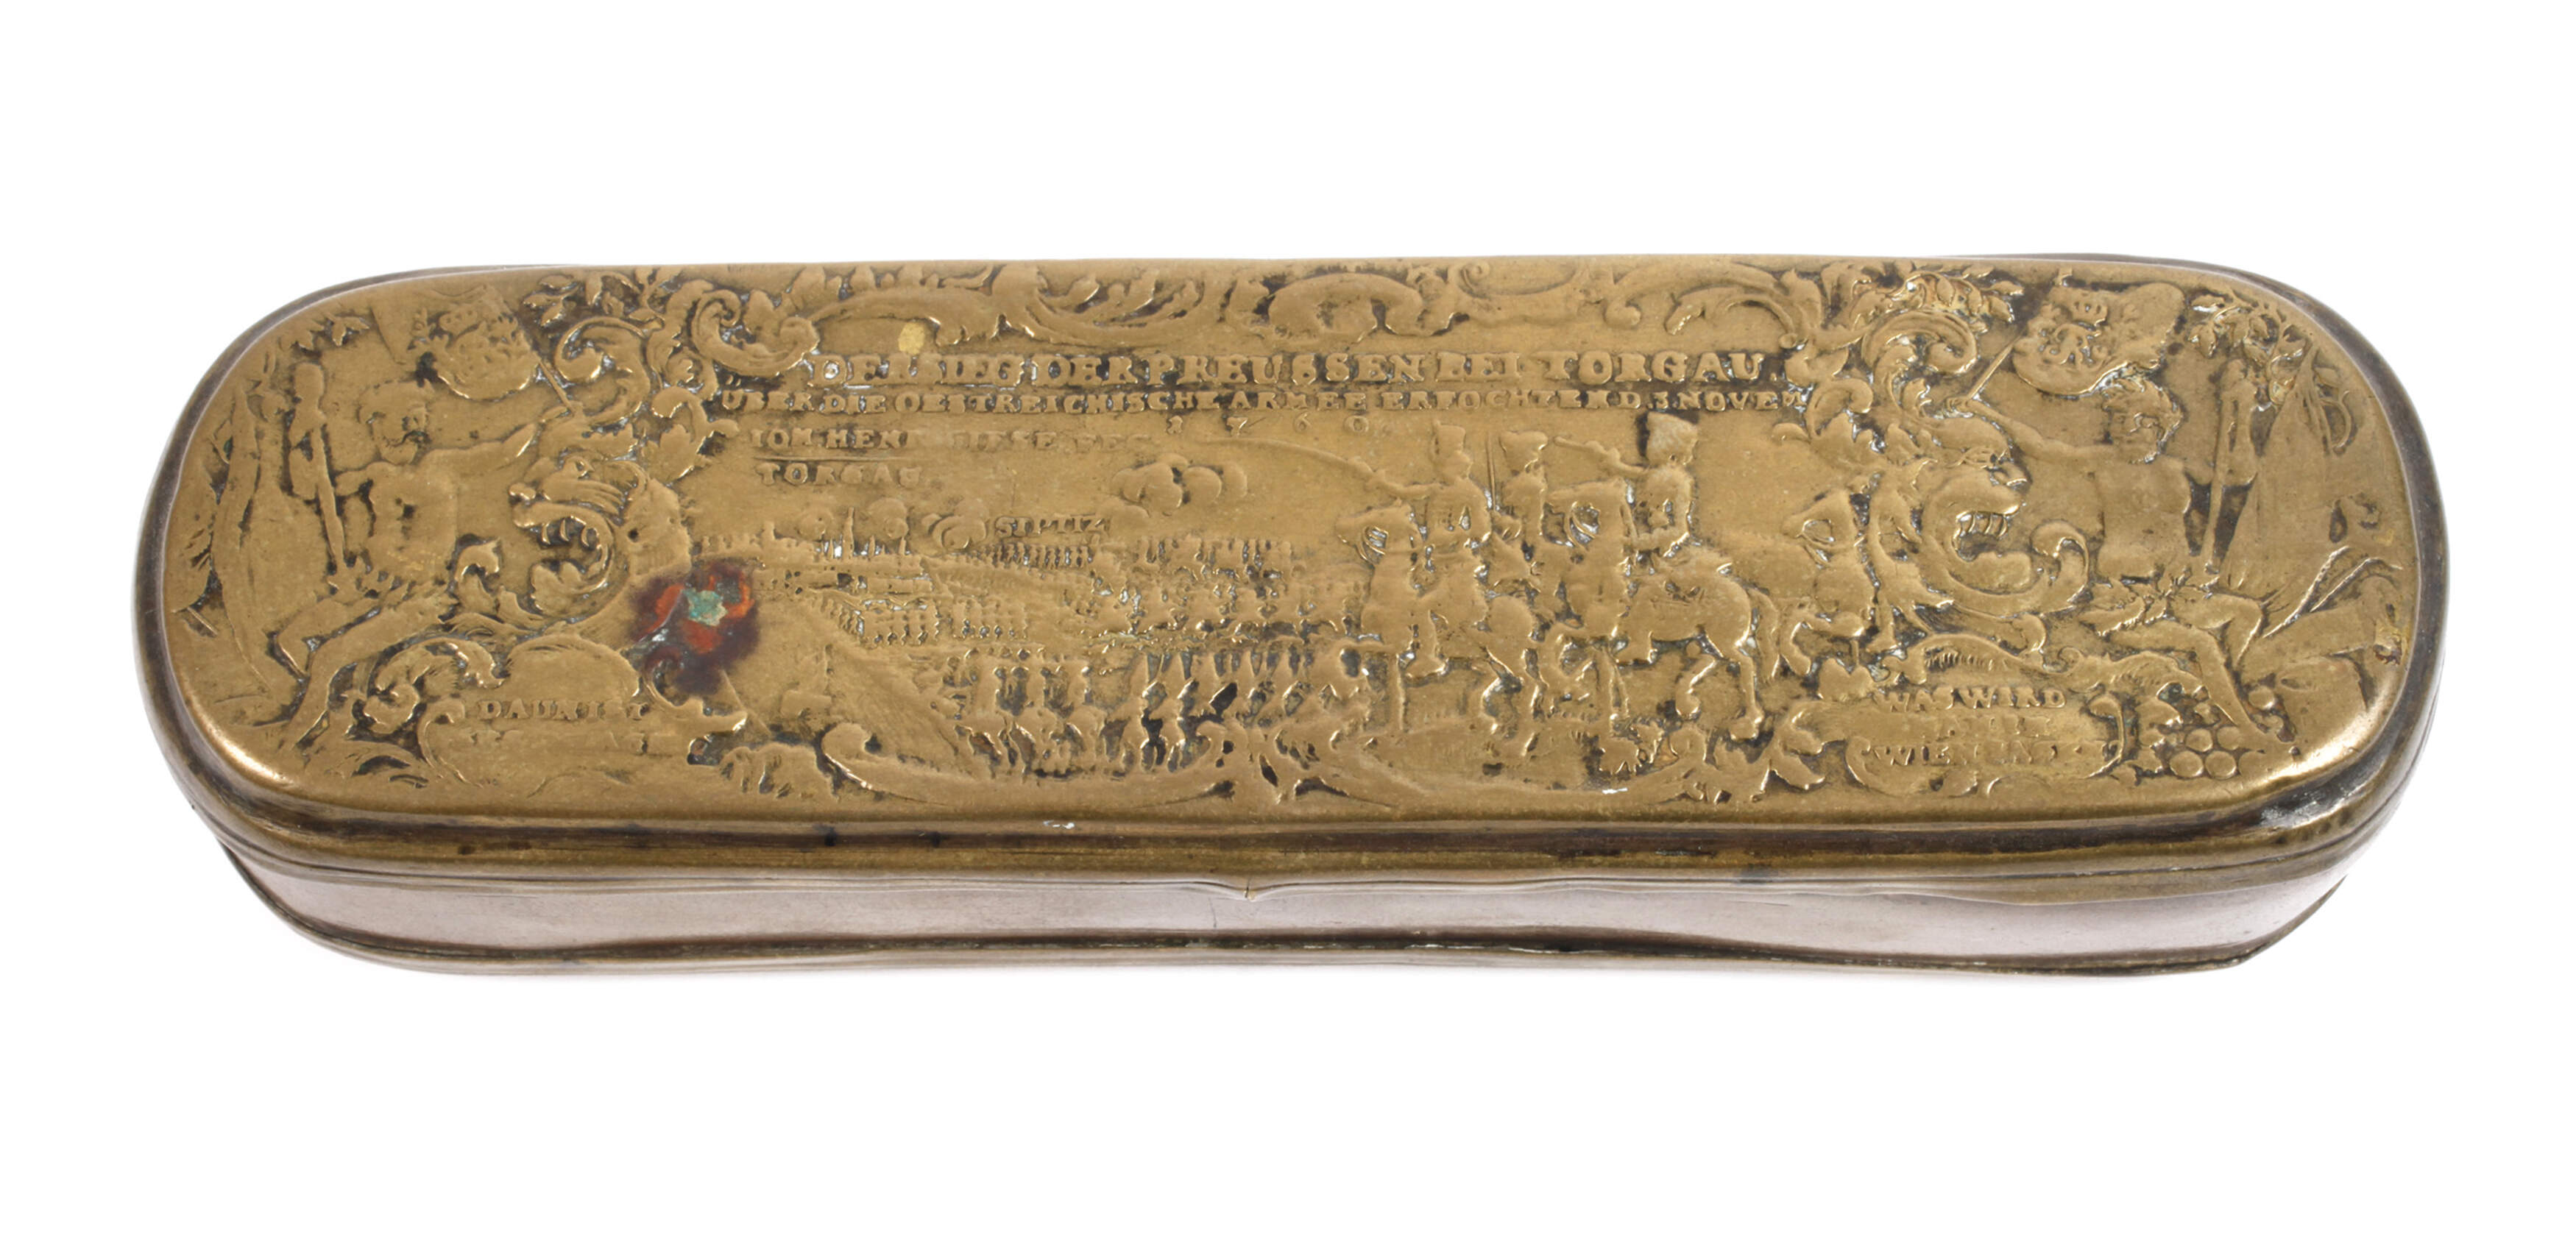 DER SIEG DER PREUSSEN BEI TORGAU.
ÜBER DIE OESTREICHISCHE ARMEE ERFOCHTEN D. 3 NOVEM
1760.
IOH. HENR. GIESE FEC.
TORGAU
SIPTIZ
DAUN IST
WAS WIRD
WIEN